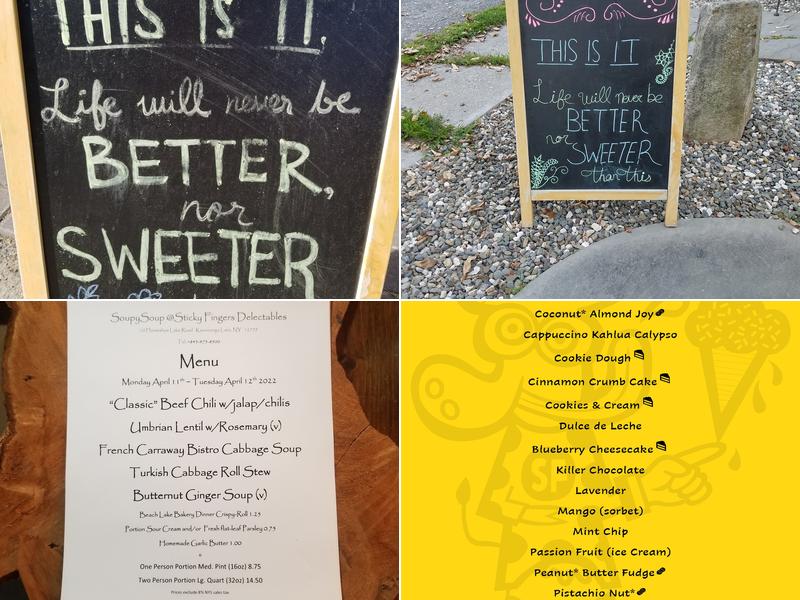 THIS IS IT.
Life will never be
BETTER,
nor
SWEETER
THIS IS IT
Life will never be
BETTER
nor
SWEETER
than this
SoupySoup @Sticky Fingers Delectables
Menu
Monday April 11th – Tuesday April 12th 2022
“Classic” Beef Chili w/jalap/chilis
Umbrian Lentil w/Rosemary (v)
French Carraway Bistro Cabbage Soup
Turkish Cabbage Roll Stew
Butternut Ginger Soup (v)
Beach Lake Bakery Dinner Crispy-Roll 1.25
Portion Sour Cream and/or Fresh flat-leaf Parsley 0.75
Homemade Garlic Butter 1.00
One Person Portion Med. Pint (16oz) 8.75
Two Person Portion Lg. Quart (32oz) 14.50
Prices exclude 8% NYS sales tax
Coconut* Almond Joy
Cappuccino Kahlua Calypso
Cookie Dough
Cinnamon Crumb Cake
Cookies & Cream
Dulce de Leche
Blueberry Cheesecake
Killer Chocolate
Lavender
Mango (sorbet)
Mint Chip
Passion Fruit (ice Cream)
Peanut* Butter Fudge
Pistachio Nut*
SP